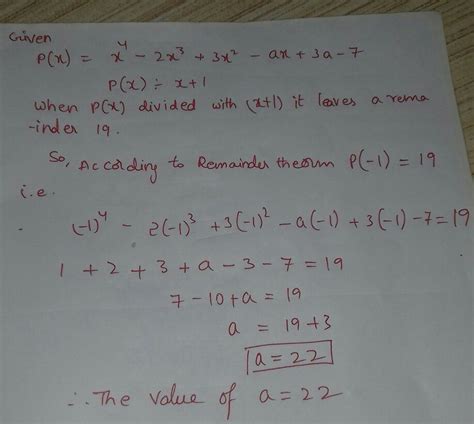 Given
P(x) = x⁴ - 2x³ + 3x² - ax + 3a - 7
P(x) ÷ x+1
when P(x) divided with (x+1) it leaves a rema
-inder 19.
So, According to Remainder theorem P(-1) = 19
i.e.
(-1)⁴ - 2(-1)³ + 3(-1)² - a(-1) + 3(-1) - 7 = 19
1 + 2 + 3 + a - 3 - 7 = 19
7 - 10 + a = 19
a = 19 + 3
a = 22
∴ The value of a = 22